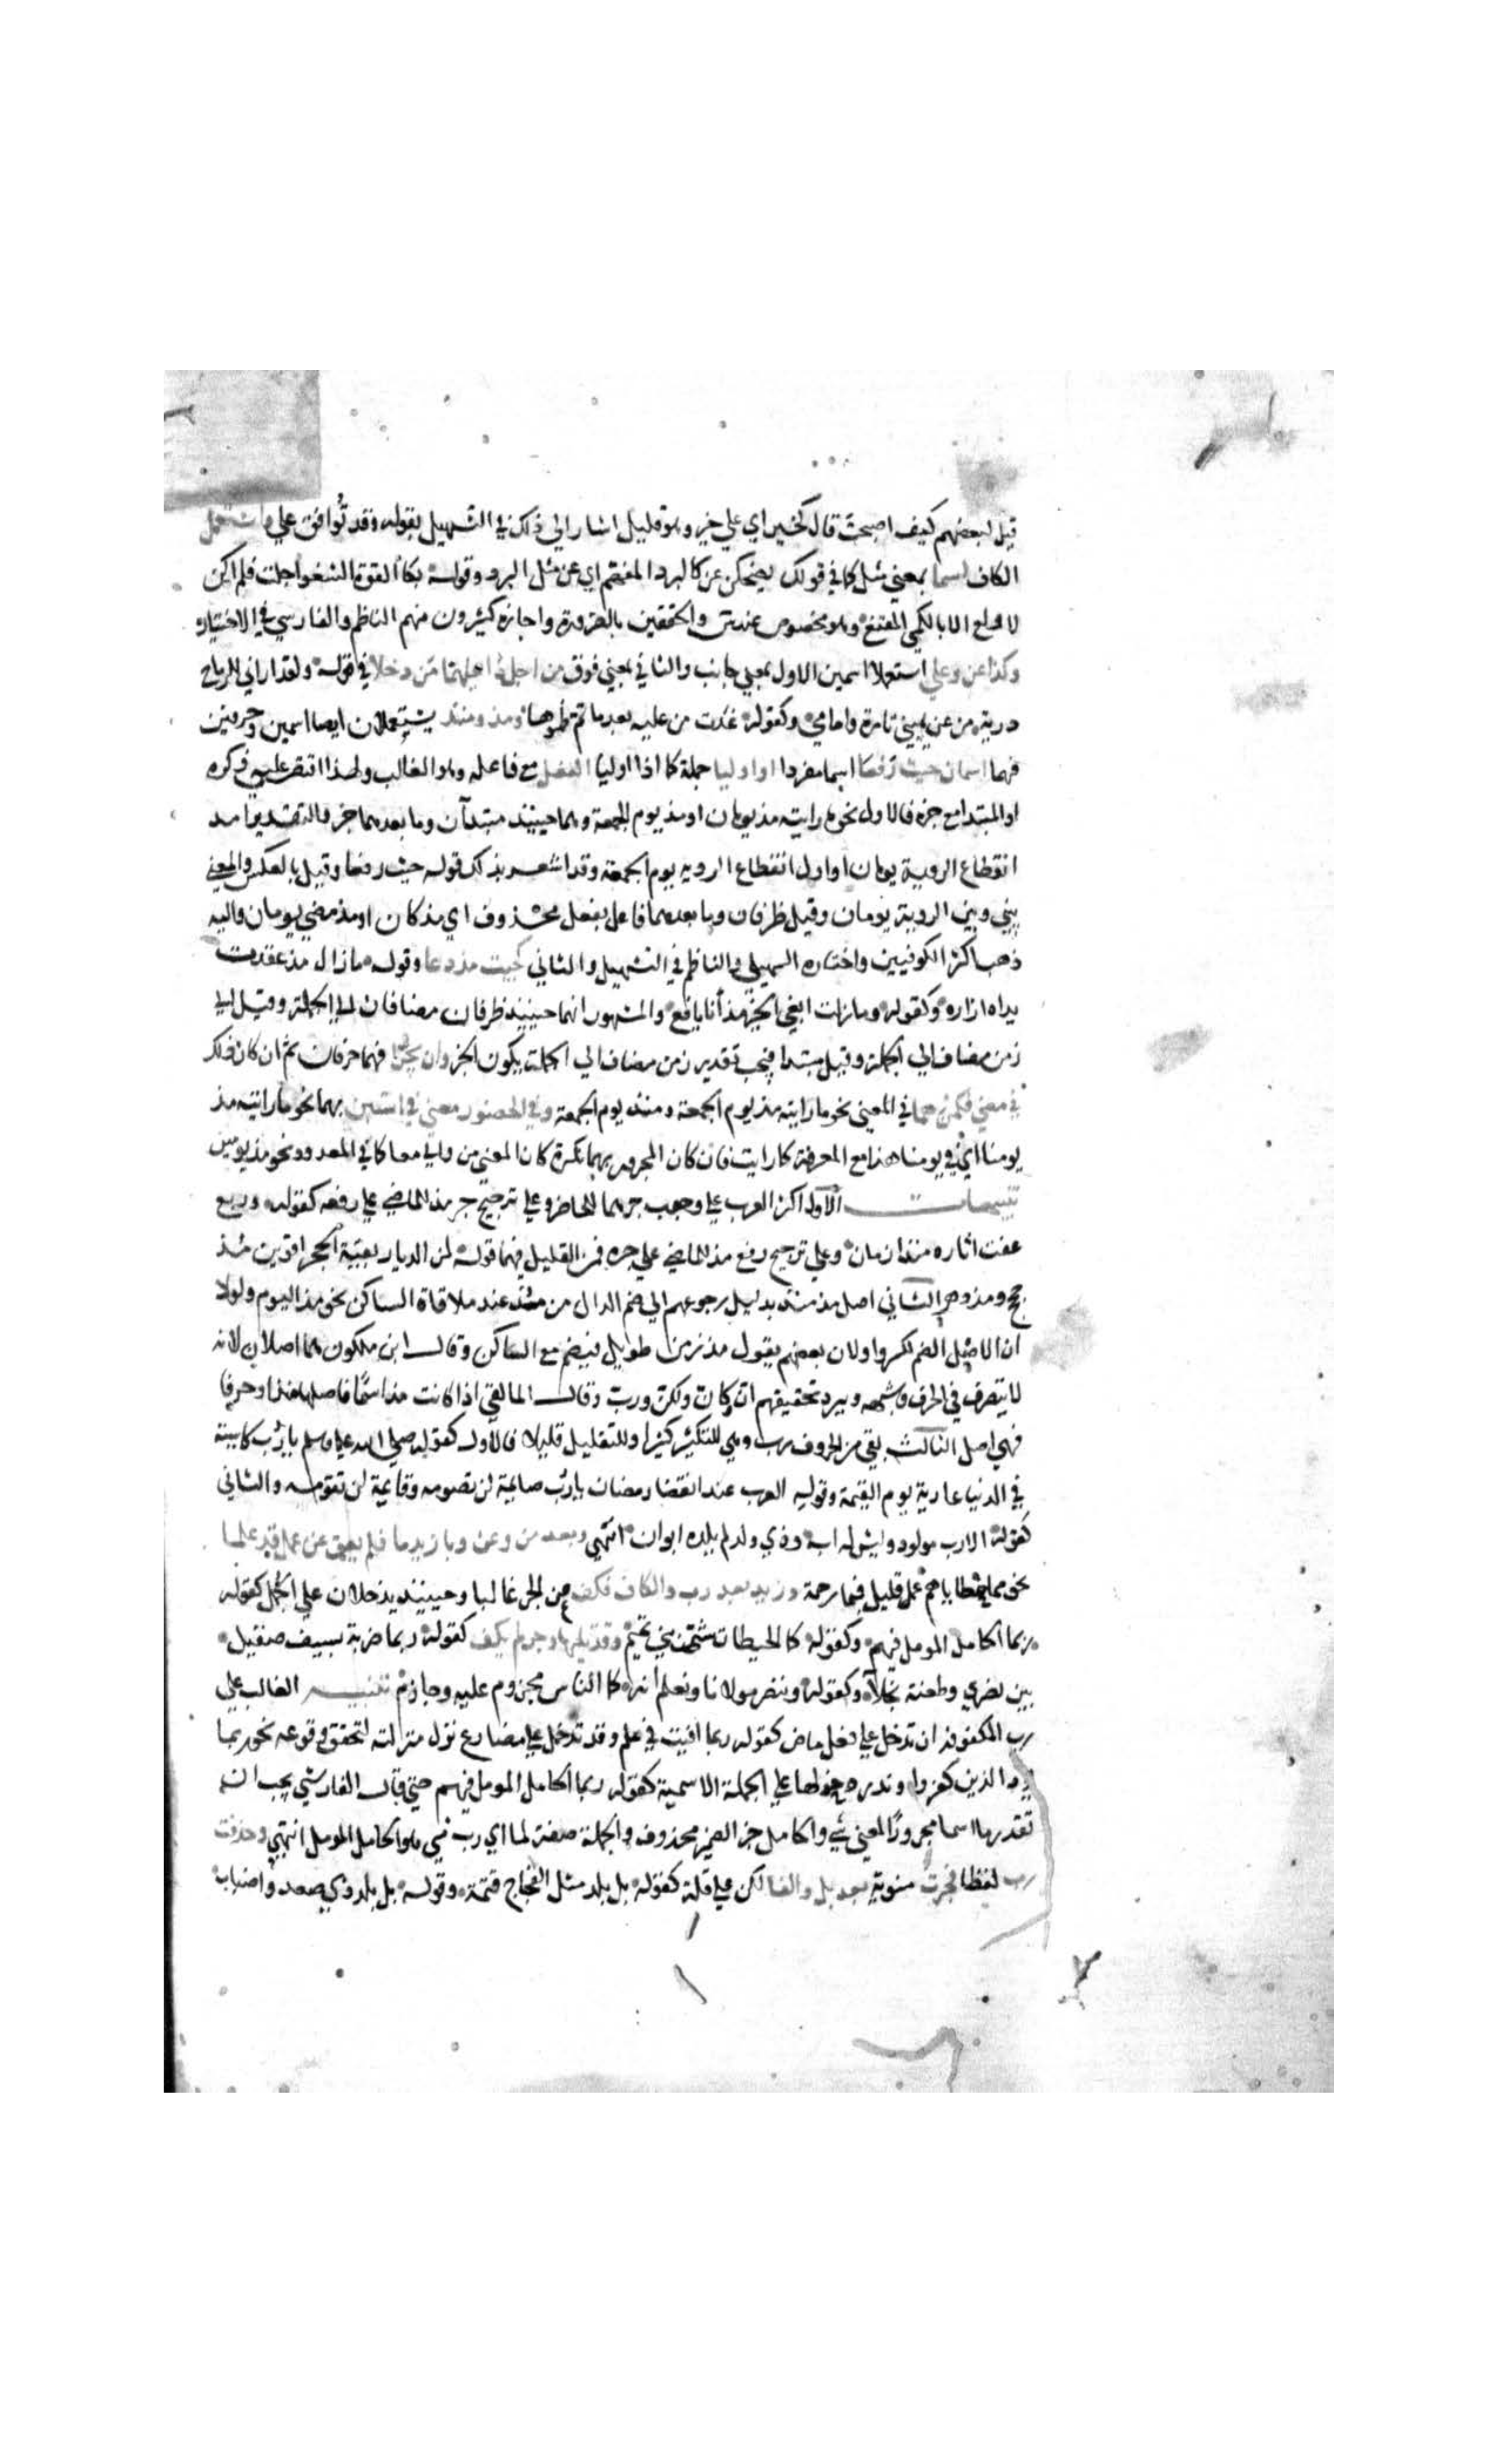 قيل لبعضهم كيف اصبحت قال كخير اي علي خير وهو قليل اشار الي ذلك في التسهيل بقوله وقد توافق علي واستعمل
الكاف اسما بمعني مثل كما في قولك يضحكن عن كالبرد المنهم اي عن مثل البرد وقوله بكا للقوة الشغوا جلت فلم اكن
لاولع الا بالكمي المقنع وهو مخصوص عند س والمحققين بالضرورة واجازه كثيرون منهم الناظم والفارسي في الاختيار
وكذا عن وعلي استعملا اسمين الاول بمعني جانب والثاني بمعني فوق من اجل ذا عليهما من دخلا في قوله ولقد اراني للرماح
درية من عن يميني تارة وامامي وكقوله غدت من عليه بعد ما تم ظموها ومذ ومنذ يستعملان ايضا اسمين وحرفين
فهما اسمان حيث رفعا اسما مفردا او اوليا جملة كما اذا اوليا الفعل مع فاعله وهو الغالب ولهذا اقتصر علي ذكره
او المبتدا مع خبره فالاول نحو ما رايته مذ يومان او منذ يوم الجمعة وهما حينيذ مبتدآن وما بعدهما خبر والتقدير امد
انقطاع الروية يومان واول انقطاع الرويه يوم الجمعة وقد اشعر بذلك قوله حيث رفعا وقيل بالعكس والمعني
بيني وبين الروية يومان وقيل ظرفان وما بعدهما فاعل بفعل محذوف اي مذ كان او مذ مضي يومان واليه
ذهب اكثر الكوفيين واختاره السهيلي والناظم في التسهيل والثاني كجيت مذ دعا وقوله ما زال مذ عقدت
يداه ازاره وكقوله وما زلت ابغي الخير مذ أنا يافع والمشهور انهما حينيذ ظرفان مضافان الي الجملة وقيل الي
زمن مضاف الي الجملة وقيل مبتدا فيجب تقدير زمن مضاف الي الجملة يكون الخبر وان يجرا فهما حرفان ثم ان كان ذلك
في مضي فكمن هما في المعني نحو ما رايته مذ يوم الجمعة ومنذ يوم الجمعة وفي الحضور معني في استبن بهما نحو ما رايته مذ
يومنا اي في يومنا هذا مع المعرفة كما رايت فان كان المجرور بهما نكرة كان المعني من والي معا كما في المعدود نحو مذ يومين
تنبيهات الاول اكثر العرب علي وجوب جرهما للحاضر وعلي ترجيح جر منذ للماضي علي رفعه كقوله وربع
عفت اثاره منذ ازمان وعلي ترجيح رفع مذ للماضي علي جره فمن القليل فيهما قوله لمن الديار بقنة الحجر اقوين مذ
حجج ومذ دهر الثاني اصل مذ منذ بدليل رجوعهم الي ضم الدال من مذ عند ملاقاة الساكن نحو مذ اليوم ولولا
ان الاصل الضم لكسروا ولان بعضهم يقول مذ زمن طويل فيضم مع الساكن وقال ابن ملكون هما اصلان لانه
لا يتصرف في الحرف وشبهه ويرد تخفيفهم ان وكان ولكن ورب وقال المالقي اذا كانت مذ اسما فاصلها منذ او حرفا
فهي اصل الثالث بقي من الحروف رب وهي للتكثير كثيرا وللتقليل قليلا فالاول كقوله صلي الله عليه وسلم يا رب كاسية
في الدنيا عارية يوم القيمة وقول العرب عند انقضا رمضان يا رب صايمه لن تصومه وقايمة لن تقومه والثاني
كقوله الا رب مولود وليس له اب وذي ولد لم يلده ابوان انتهي وبعد من وعن وبا زيد ما فلم يعق عن عمل قد علما
نحو مما خطاياهم عما قليل فبما رحمة وزيد بعد رب والكاف فكف عن الجر غالبا وحينيذ يدخلان علي الجمل كقوله
ربما الجامل المومل فيهم وكقوله كما الحبطات شر بني تميم وقد يليهما وجر لم يكف كقوله ربما ضربة بسيف صقيل
بين بصري وطعنة نجلآ وكقوله وننصر مولانا ونعلم انه كما الناس مجروم عليه وجارم تنبيه الغالب علي
رب المكفوفة ان تدخل علي فعل ماض كقوله ربما اوفيت في علم وقد تدخل علي مضارع نزل منزلته لتحقق وقوعه نحو ربما
يود الذين كفروا وندر دخولها علي الجملة الاسمية كقوله ربما الجامل المومل فيهم حتي قال الفارسي يجب ان
تقدر ما اسما مجرورا لمعني شي والجامل خبر الضمير محذوف والجملة صفة لما اي رب شي هو الجامل المومل انتهي وحذفت
رب لفظا فجرت منوية بعد بل والفا لكن علي قلة كقوله بل بلد مثل الفجاج قتمه وقوله بل بلد ذي صعد واضباب